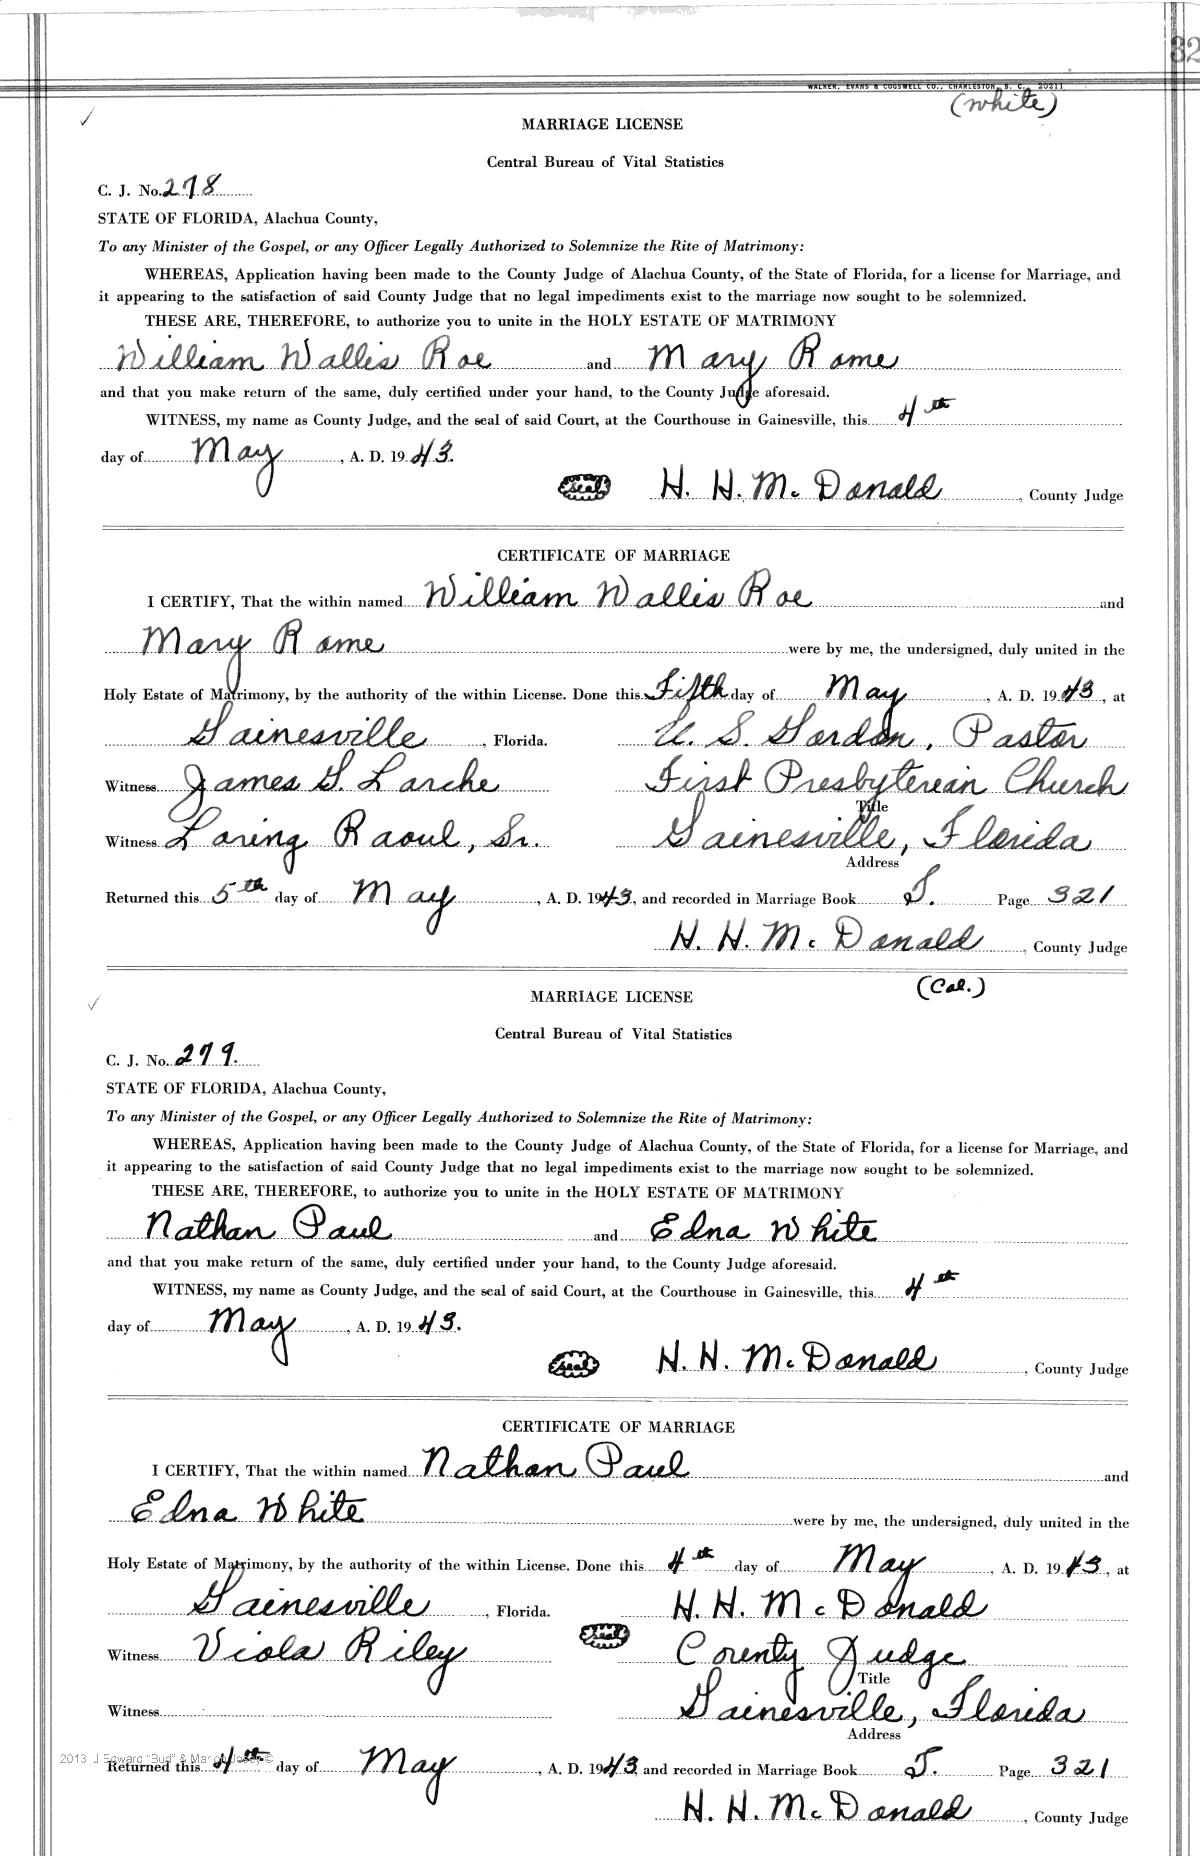 32
WALKER, EVANS & COGSWELL CO., CHARLESTON, S. C. 20211
(white)
MARRIAGE LICENSE
Central Bureau of Vital Statistics
C. J. No. 278
STATE OF FLORIDA, Alachua County,
To any Minister of the Gospel, or any Officer Legally Authorized to Solemnize the Rite of Matrimony:
WHEREAS, Application having been made to the County Judge of Alachua County, of the State of Florida, for a license for Marriage, and
it appearing to the satisfaction of said County Judge that no legal impediments exist to the marriage now sought to be solemnized.
THESE ARE, THEREFORE, to authorize you to unite in the HOLY ESTATE OF MATRIMONY
William Wallis Roe and Mary Rome
and that you make return of the same, duly certified under your hand, to the County Judge aforesaid.
WITNESS, my name as County Judge, and the seal of said Court, at the Courthouse in Gainesville, this 4th
day of May, A. D. 1943.
Seal H. H. McDonald, County Judge
CERTIFICATE OF MARRIAGE
I CERTIFY, That the within named William Wallis Roe and
Mary Rome were by me, the undersigned, duly united in the
Holy Estate of Matrimony, by the authority of the within License. Done this Fifth day of May, A. D. 1943, at
Gainesville, Florida. U. S. Gordon, Pastor
Witness James G. Larche First Presbyterian Church
Title
Witness Loring Raoul, Sr. Gainesville, Florida
Address
Returned this 5th day of May, A. D. 1943, and recorded in Marriage Book T. Page 321
H. H. McDonald, County Judge
(Col.)
MARRIAGE LICENSE
Central Bureau of Vital Statistics
C. J. No. 279.
STATE OF FLORIDA, Alachua County,
To any Minister of the Gospel, or any Officer Legally Authorized to Solemnize the Rite of Matrimony:
WHEREAS, Application having been made to the County Judge of Alachua County, of the State of Florida, for a license for Marriage, and
it appearing to the satisfaction of said County Judge that no legal impediments exist to the marriage now sought to be solemnized.
THESE ARE, THEREFORE, to authorize you to unite in the HOLY ESTATE OF MATRIMONY
Nathan Paul and Edna White
and that you make return of the same, duly certified under your hand, to the County Judge aforesaid.
WITNESS, my name as County Judge, and the seal of said Court, at the Courthouse in Gainesville, this 4th
day of May, A. D. 1943.
Seal H. H. McDonald, County Judge
CERTIFICATE OF MARRIAGE
I CERTIFY, That the within named Nathan Paul and
Edna White were by me, the undersigned, duly united in the
Holy Estate of Matrimony, by the authority of the within License. Done this 4th day of May, A. D. 1943, at
Gainesville, Florida. H. H. McDonald
Witness Viola Riley Seal County Judge
Title
Witness Gainesville, Florida
Address
2013 J Edward "Bud" &
Returned this 4th day of May, A. D. 1943, and recorded in Marriage Book T. Page 321
H. H. McDonald, County Judge